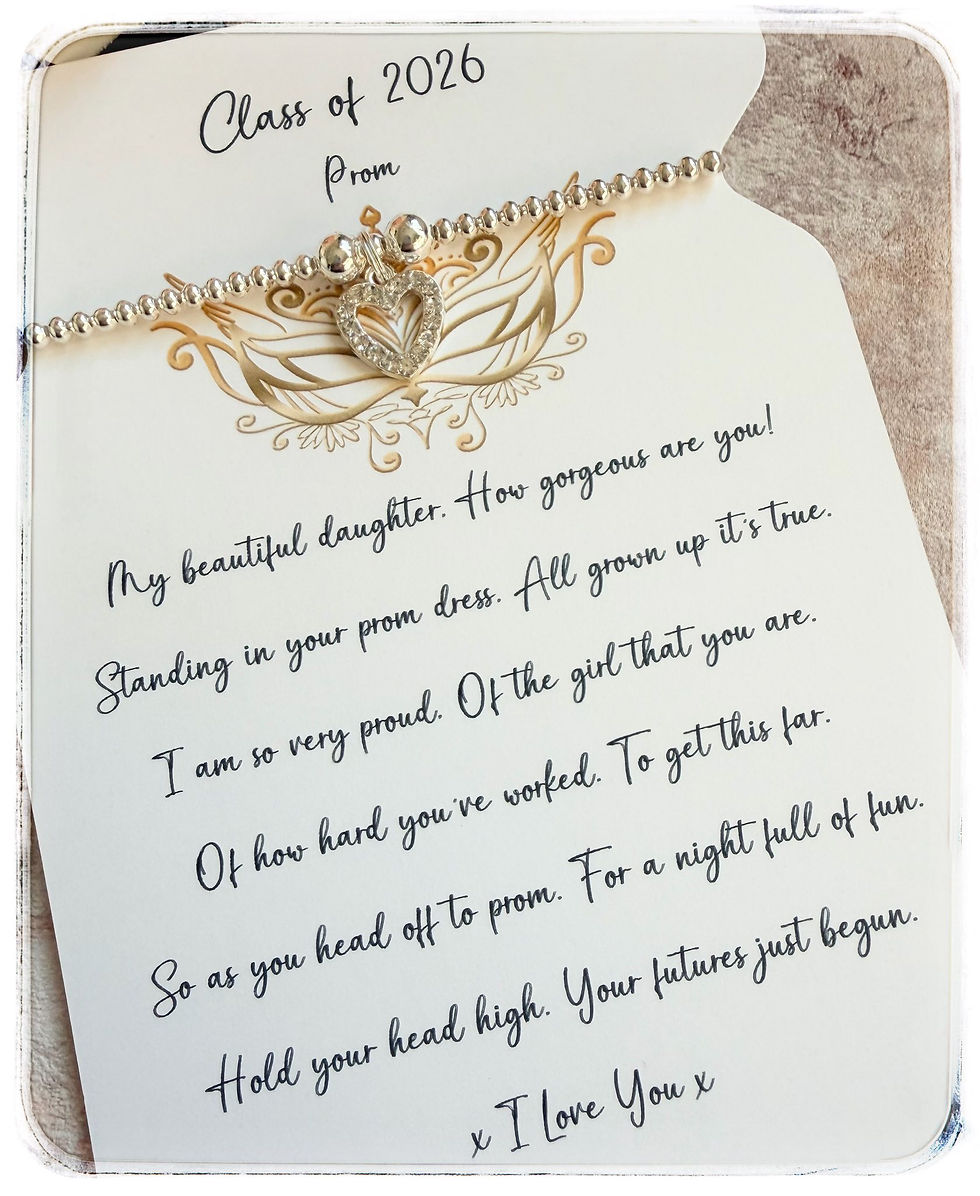 Class of 2026
Prom
My beautiful daughter. How gorgeous are you!
Standing in your prom dress. All grown up it's true.
I am so very proud. Of the girl that you are.
Of how hard you've worked. To get this far.
So as you head off to prom. For a night full of fun.
Hold your head high. Your futures just begun.
x I Love You x